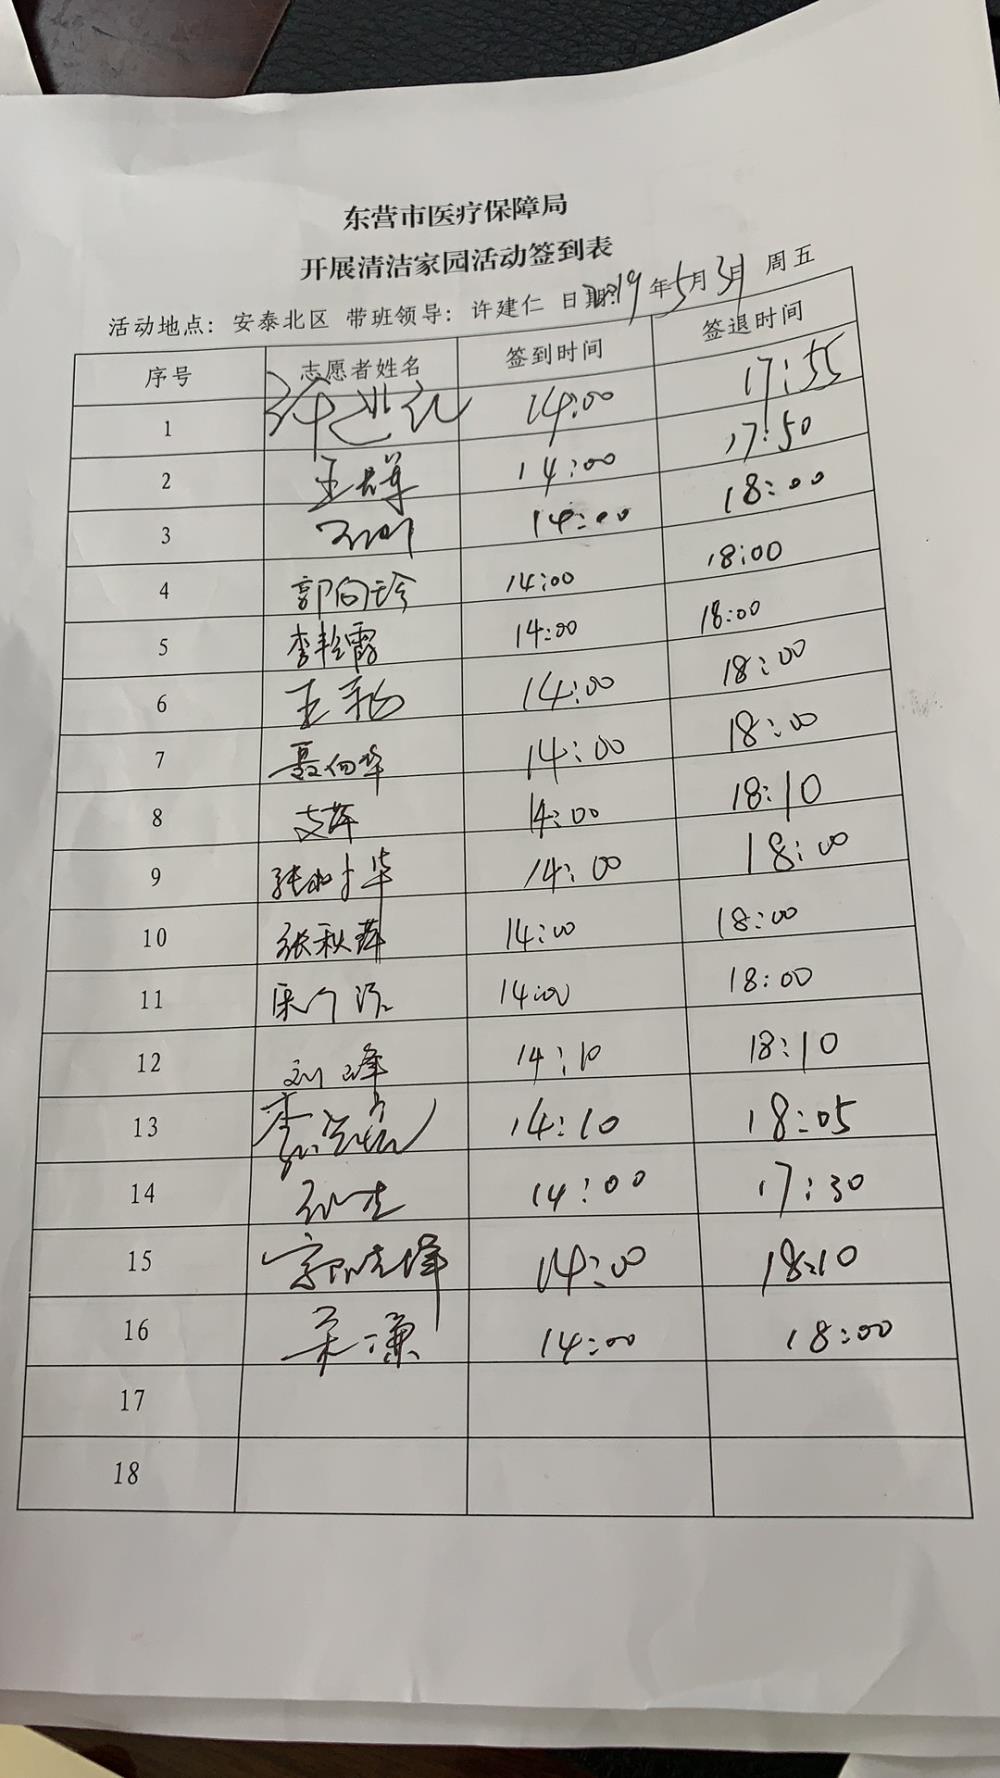 东营市医疗保障局
开展清洁家园活动签到表
活动地点：安泰北区 带班领导：许建仁 日期：19年5月3日 周五
序号 志愿者姓名 签到时间 签退时间
1 14:00 17:55
2 王群 14:00 17:50
3 14:00 18:00
4 郭向珍 14:00 18:00
5 李艳霞 14:00 18:00
6 王 14:00 18:00
7 聂向华 14:00 18:00
8 14:00 18:10
9 张 华 14:00 18:00
10 张秋萍 14:00 18:00
11 14:00 18:00
12 刘峰 14:10 18:10
13 李 14:10 18:05
14 14:00 17:30
15 14:00 18:10
16 14:00 18:00
17
18